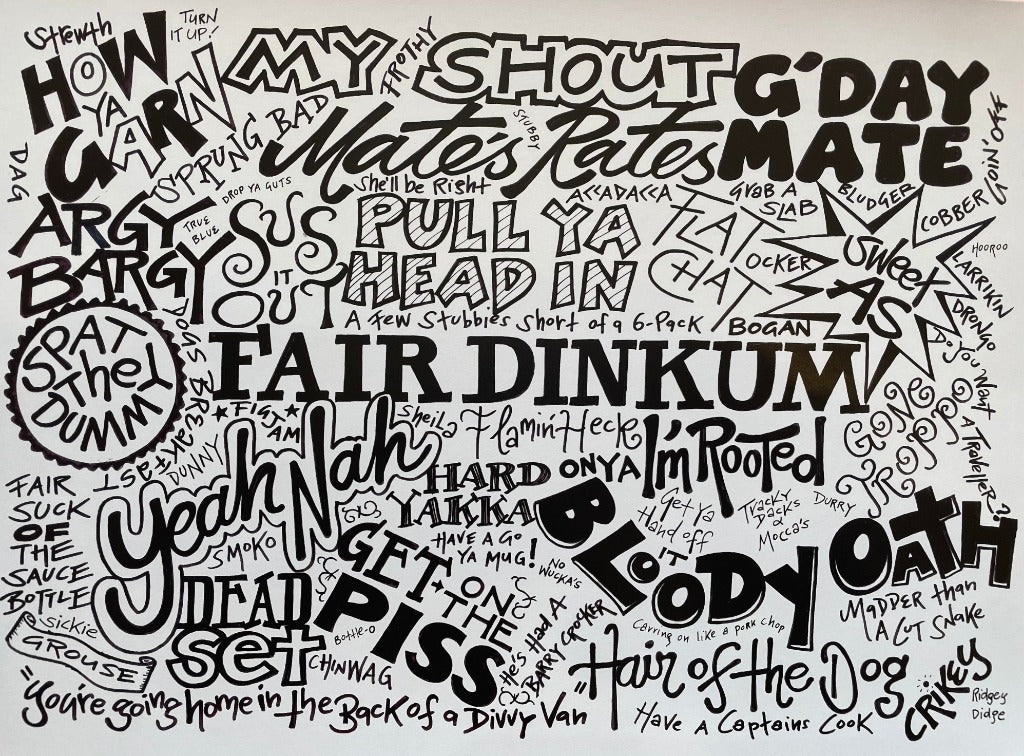 Strewth
TURN
IT UP!
HOW
YA
GARN
MY SHOUT
FROTHY
G'DAY
MATE
DAG
SPRUNG BAD
Mate's Rates
STUBBY
DROP YA GUTS
She'll be Right
ACCADACCA
GRAB A
SLAB
BLUDGER
COBBER
HOOROO
LARRIKIN
DRONGO
ARGY
BARGY
TRUE
BLUE
SUS
IT
OUT
PULL YA
HEAD IN
FLAT
CHAT
OCKER
Sweet
AS
A few Stubbies Short of a 6-Pack
BOGAN
Do You Want A Traveller?
SPAT
They
DUMMY
DOGS BREAKFAST
FAIR DINKUM
FIGJAM
DUNNY
Yeah Nah
Sheila
Flamin' Heck
HARD
YAKKA
ONYA
I'm Rooted
GONE
TROPPO
FAIR
SUCK
OF
THE
SAUCE
BOTTLE
SMOKO
HAVE A GO
YA MUG!
NO
WUCKA'S
Get ya
Hand off
it
Tracky
Dacks
&
Mocca's
DURRY
BLOODY
OATH
GET ON
THE
PISS
DEAD
set
Bottle-O
CHINWAG
He's Had A
BARRY CROCKER
Carrying on like a pork chop
MADDER than
A CUT SNAKE
Sickie
GROUSE
"Hair of the Dog
CRIKEY
Ridgey
Didge
"You're going home in the Back of a Divvy Van
Have A Captains Cook